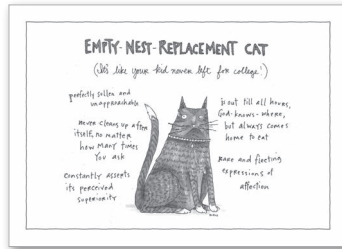 EMPTY-NEST-REPLACEMENT CAT
(It's like your kid never left for college!)
perfectly sullen and
unapproachable
never cleans up after
itself, no matter
how many times
you ask
Constantly asserts
its perceived
superiority
is out till all hours,
God-knows-where,
but always comes
home to eat
Rare and fleeting
expressions of
affection